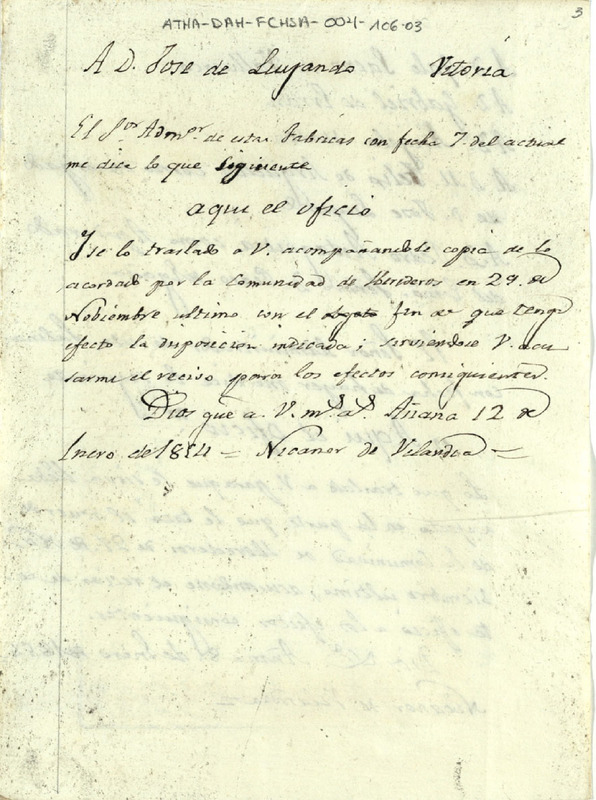 3
ATHA-DAH-FCHSA-004-106-03
A D. Jose de Luyando Vitoria
El Sor. Admor. de estas Fabricas con fecha 7. del actual
me dice lo que siguiente
aqui el oficio
Y se lo traslado a V. acompañandole copia de lo
acordado por la Comunidad de Herederos en 29. de
Nobiembre ultimo con el objeto fin de que tenga
efecto la disposicion indicada; sirviendose V. acu
sarme el reciso para los efectos consiguientes.
Dios gue. a V. ms. as. Añana 12 de
Enero de 1854 = Nicanor de